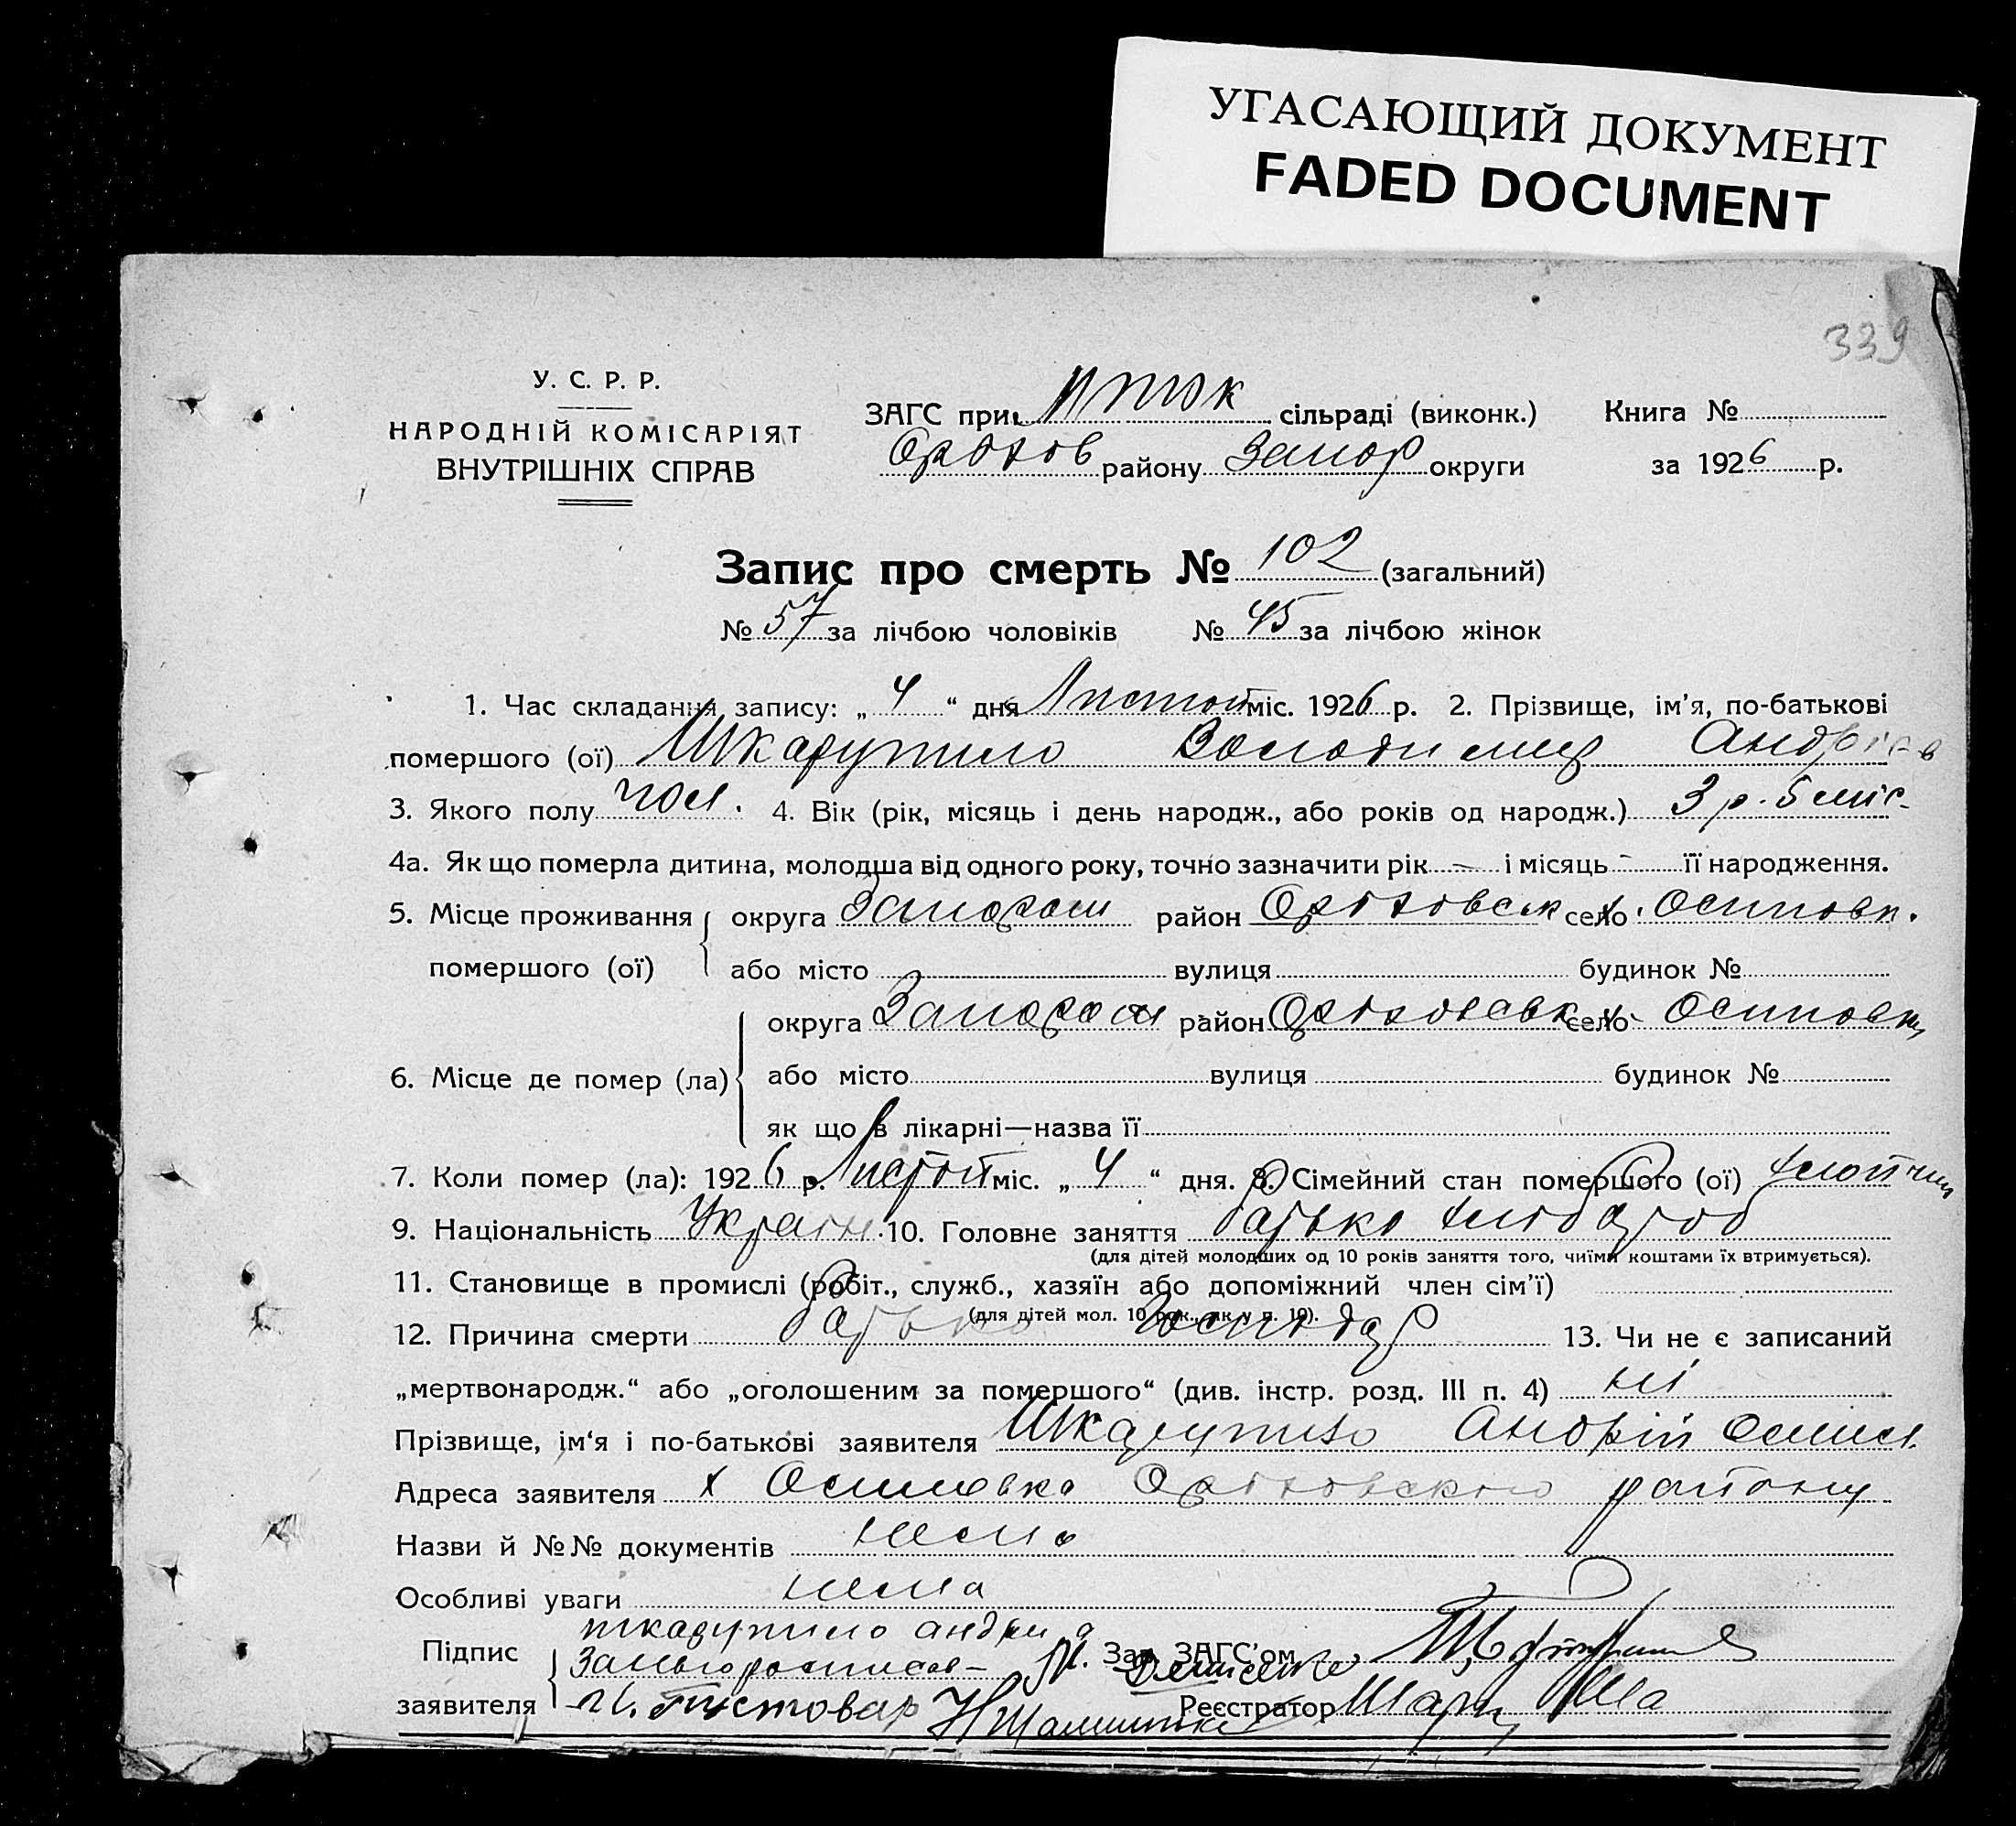 УГАСАЮЩИЙ ДОКУМЕНТ
FADED DOCUMENT
339
У. С. Р. Р.
НАРОДНІЙ КОМІСАРІЯТ
ВНУТРІШНІХ СПРАВ
ЗАГС при сільраді (виконк.)
Оріхов району Запор округи
Книга №
за 1926 р.
Запис про смерть № 102 (загальний)
№ 57 за лічбою чоловіків № 45 за лічбою жінок
1. Час складання запису: „ 4 “ дня Листоп міс. 1926 р. 2. Прізвище, ім'я, по-батькові
помершого (ої) Шкарупило Володимир Андріев
3. Якого полу чол. 4. Вік (рік, місяць і день народж., або років од народж.) 3 р. 5 міс.
4а. Як що померла дитина, молодша від одного року, точно зазначити рік — і місяць - її народження.
5. Місце проживання округа район Оріховськ село х. Осиповк.
помершого (ої) або місто вулиця будинок №
округа район Оріховськ село х. Осиповк
6. Місце де помер (ла) або місто вулиця будинок №
як що в лікарні—назва її
7. Коли помер (ла): 1926 р. Листоп міс. „ 4 “ дня. 8. Сімейний стан помершого (ої) хлопчик
9. Національність Україн. 10. Головне заняття батько хлібороб
(для дітей молодших од 10 років заняття того, чиїми коштами їх втримується).
11. Становище в промислі (робіт., служб., хазяїн або допоміжний член сім'ї)
(для дітей мол. 10 рок., як у п. 10).
батько господар
12. Причина смерти 13. Чи не є записаний
„мертвонародж.“ або „оголошеним за помершого“ (див. інстр. розд. III п. 4) ні
Прізвище, ім‘я і по-батькові заявителя Шкарупило Андрій
Адреса заявителя х Осиповка Оріховского району
Назви й №№ документів нема
Особливі уваги нема
Підпис шкарупило андри
заявителя
Зав. ЗАГС'ом
Реєстратор